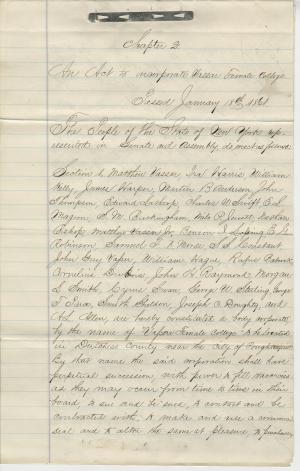 Chapter 2
An Act to incorporate Vassar Female College
Passed January 18th, 1861
The People of the State of New York rep-
resented in Senate and Assembly, do enact as follows:
Section 1. Matthew Vassar, Ira Harris, William
Kelly, James Harper, Martin B. Anderson, John
Thompson, Edward Lathrop, Charles W. Swift, E. L.
Magoon, S. M. Buckingham, Milo P. Jewett, Nathan
Bishop, Matthew Vassar Jr., Benson J. Lossing, E. G.
Robinson, Samuel F. B. Morse, S. S. Constant,
John Guy Vassar, William Hague, Rufus Babcock,
Cornelius DuBois, John H. Raymond, Morgan
L. Smith, Cyrus Swan, George W. Sterling, George
T. Pierce, Smith Sheldon, Joseph C. Doughty, and
A. L. Allen, are hereby constituted a body corporate,
by the name of "Vassar Female College" to be located
in Dutchess County near the city of Poughkeepsie.
By that name the said corporation shall have
perpetual succession, with power to fill vacancies
as they may occur from time to time in their
board, to sue and be sued, to contract and be
contracted with, to make and use a common
seal and to alter the same at pleasure, to purchase,